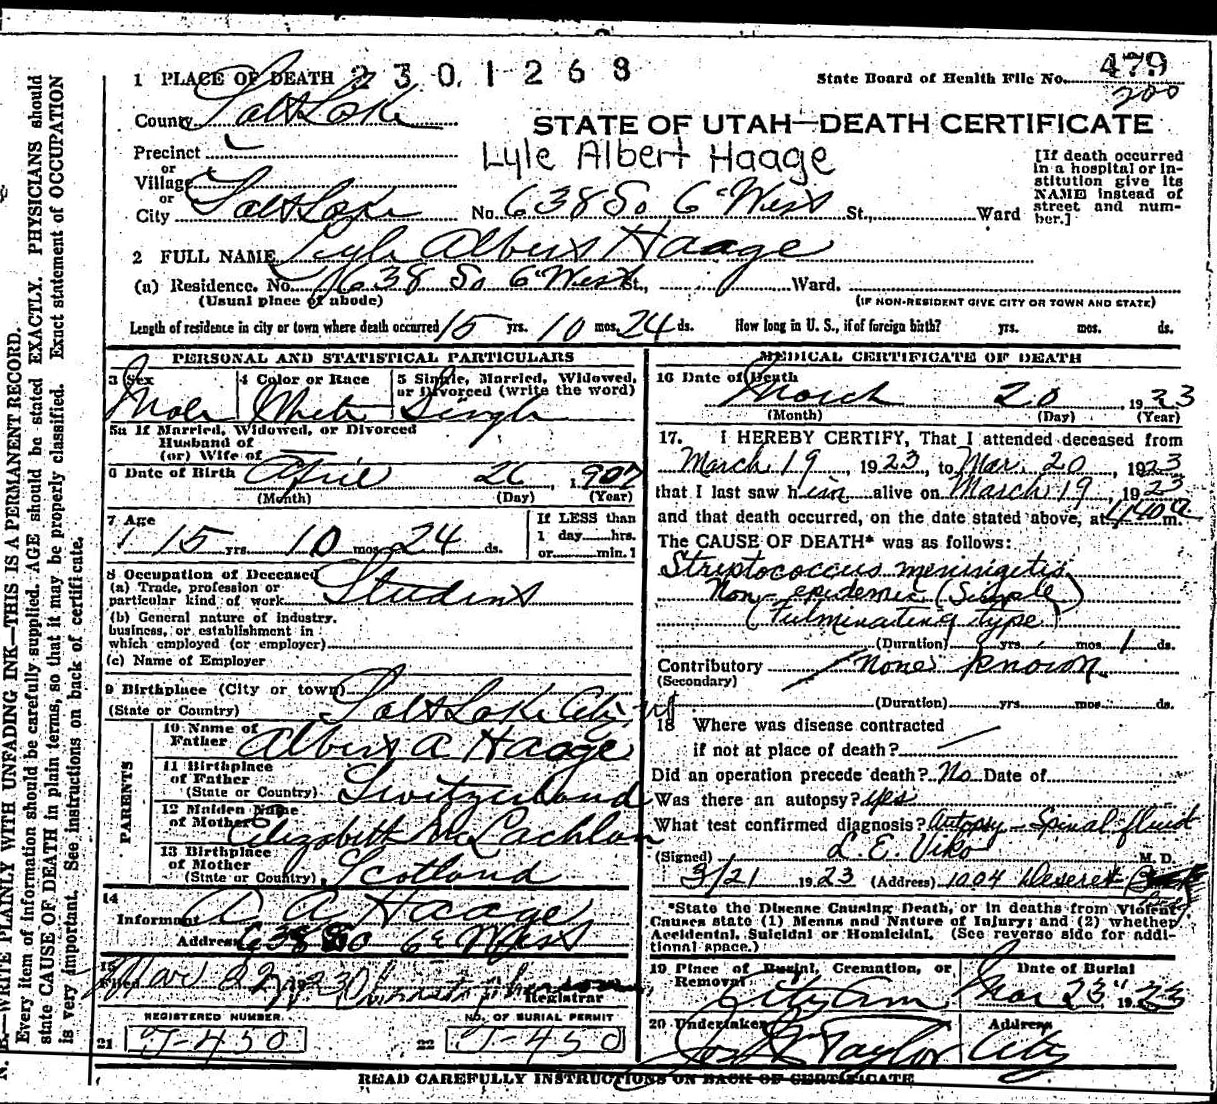 1 PLACE OF DEATH 2 3 0 1 2 6 8
State Board of Health File No. 479
200
County Salt Lake
STATE OF UTAH—DEATH CERTIFICATE
Precinct
Lyle Albert Haage
or
Village
or
City Salt Lake No. 638 So 6 West St., Ward
[If death occurred
in a hospital or in-
stitution give its
NAME instead of
street and num-
ber.]
2 FULL NAME Lyle Albert Haage
(a) Residence. No. 638 So 6 West St., Ward.
(Usual place of abode) (IF NON-RESIDENT GIVE CITY OR TOWN AND STATE)
Length of residence in city or town where death occurred 15 yrs. 10 mos. 24 ds. How long in U. S., if of foreign birth? yrs. mos. ds.
PERSONAL AND STATISTICAL PARTICULARS
3 Sex 4 Color or Race 5 Single, Married, Widowed,
or Divorced (write the word)
Male White Single
5a If Married, Widowed, or Divorced
Husband of
(or) Wife of
6 Date of Birth April 26, 1907
(Month) (Day) (Year)
7 Age
15 yrs. 10 mos. 24 ds.
If LESS than
1 day hrs.
or min.]
8 Occupation of Deceased
(a) Trade, profession or
particular kind of work Student
(b) General nature of industry,
business, or establishment in
which employed (or employer)
(c) Name of Employer
9 Birthplace (City or town)
(State or Country) Salt Lake City, Ut
PARENTS
10 Name of
Father Albert A Haage
11 Birthplace
of Father
(State or Country) Switzerland
12 Maiden Name
of Mother Elizabeth McLachlan
13 Birthplace
of Mother
(State or Country) Scotland
14
Informant A A Haage
Address 638 So 6 West
15
Filed Mar 22, 1923
Registrar
REGISTERED NUMBER. NO. OF BURIAL PERMIT
21 J-450 22 J-450
MEDICAL CERTIFICATE OF DEATH
16 Date of Death
March 20, 1923
(Month) (Day) (Year)
17. I HEREBY CERTIFY, That I attended deceased from
March 19, 1923, to Mar. 20, 1923
that I last saw him alive on March 19, 1923
and that death occurred, on the date stated above, at 440 a m.
The CAUSE OF DEATH* was as follows:
Streptococcus meningitis
Non epidemic (Simple)
(Fulminating type)
(Duration) yrs. mos. 1 ds.
Contributory none known
(Secondary)
(Duration) yrs. mos. ds.
18 Where was disease contracted
if not at place of death? —
Did an operation precede death? No Date of
Was there an autopsy? yes
What test confirmed diagnosis? Autopsy – Spinal fluid
(Signed) L. E. Viko M. D.
3/21 1923 (Address) 1004 Deseret
*State the Disease Causing Death, or in deaths from Violent
Causes state (1) Means and Nature of Injury; and (2) whether
Accidental, Suicidal or Homicidal. (See reverse side for addi-
tional space.)
19 Place of Burial, Cremation, or
Removal City Cem
Date of Burial
Mar 23" 1923
20 Undertaker Address
Taylor City
READ CAREFULLY INSTRUCTIONS ON BACK OF CERTIFICATE
N. B.—WRITE PLAINLY WITH UNFADING INK—THIS IS A PERMANENT RECORD.
Every item of information should be carefully supplied. AGE should be stated EXACTLY. PHYSICIANS should
state CAUSE OF DEATH in plain terms, so that it may be properly classified. Exact statement of OCCUPATION
is very important. See instructions on back of certificate.